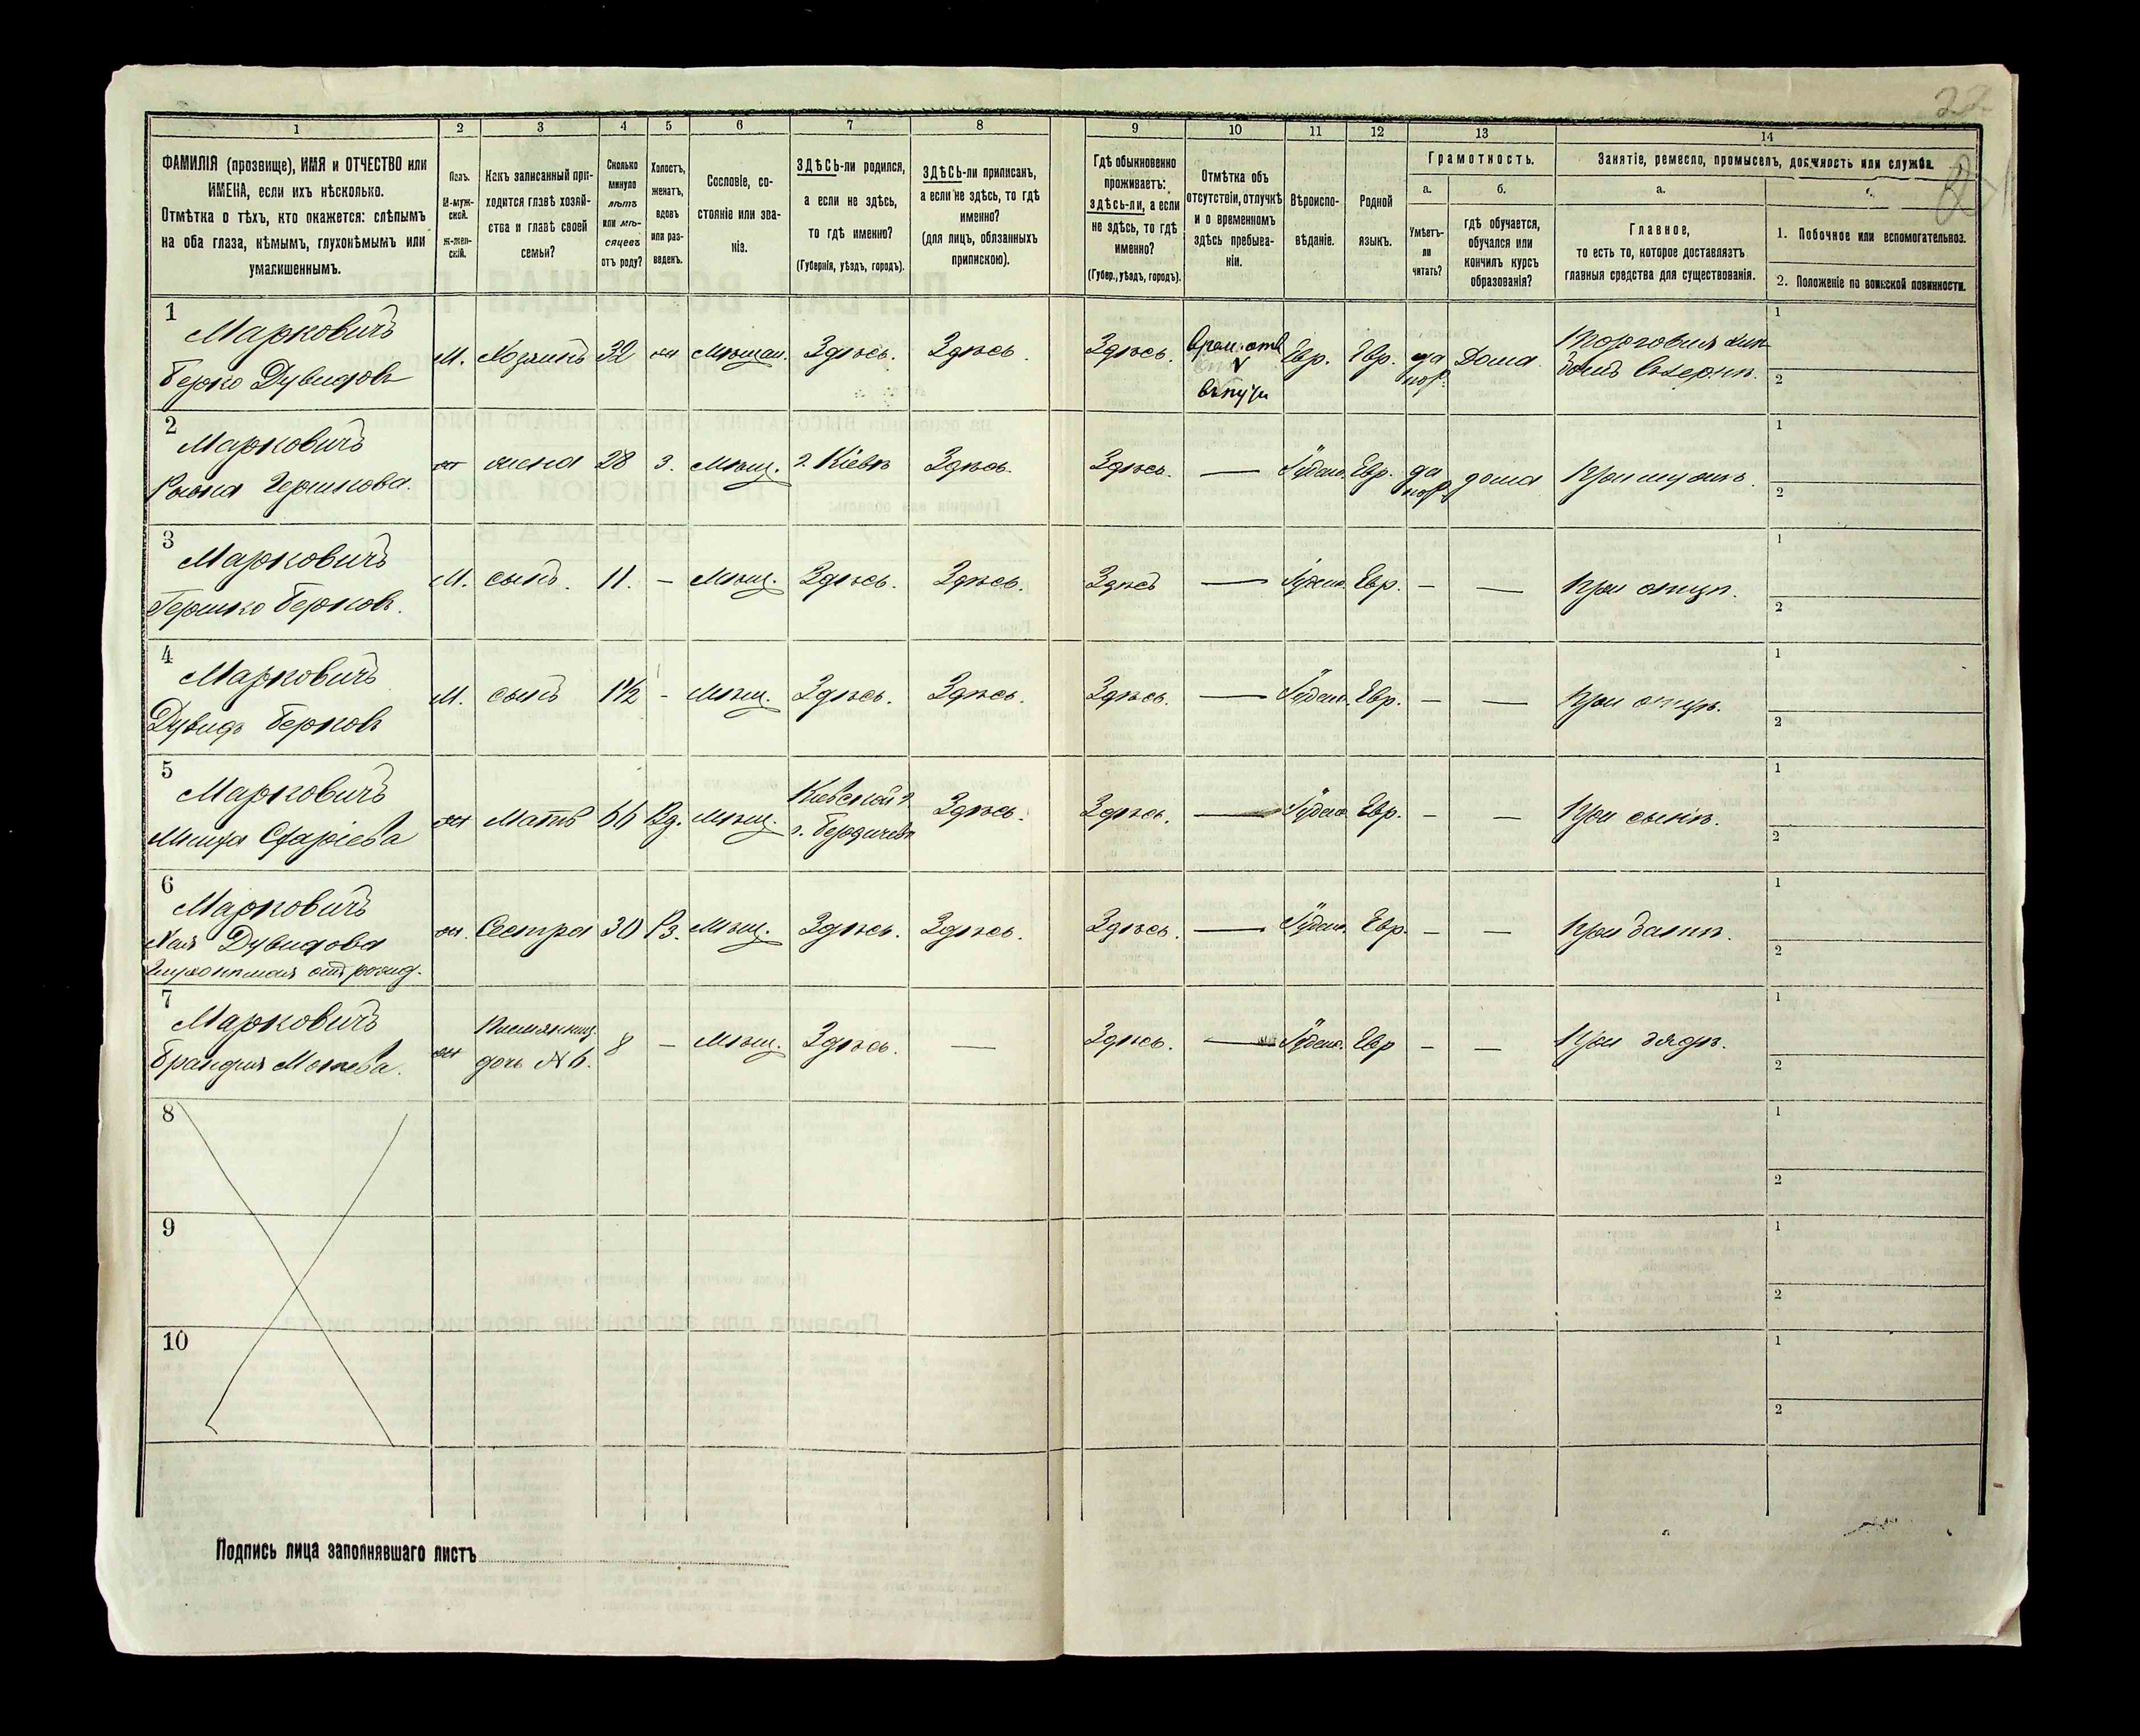 22
1 2 3 4 5 6 7 8 9 10 11 12 13 14
ФАМИЛІЯ (прозвище), ИМЯ и ОТЧЕСТВО или
ИМЕНА, если ихъ нѣсколько.
Отмѣтка о тѣхъ, кто окажется: слѣпымъ
на оба глаза, нѣмымъ, глухонѣмымъ или
умалишеннымъ.
Полъ.
М-муж-
ской.
Ж-жен-
скій.
Какъ записанный при-
ходится главѣ хозяй-
ства и главѣ своей
семьи?
Сколько
минуло
лѣтъ
или мѣ-
сяцевъ
отъ роду?
Холостъ,
женатъ,
вдовъ
или раз-
веденъ.
Сословіе, со-
стояніе или зва-
ніе.
ЗДѢСЬ-ли родился,
а если не здѣсь,
то гдѣ именно?
(Губернія, уѣздъ, городъ).
ЗДѢСЬ-ли приписанъ,
а если не здѣсь, то гдѣ
именно?
(для лицъ, обязанныхъ
припискою).
Гдѣ обыкновенно
проживаетъ:
ЗДѢСЬ-ли, а если
не здѣсь, то гдѣ
именно?
(Губер., уѣздъ, городъ).
Отмѣтка объ
отсутствіи, отлучкѣ
и о временномъ
здѣсь пребыва-
ніи.
Вѣроиспо-
вѣданіе.
Родной
языкъ.
Грамотность.
а.
Умѣетъ-
ли
читать?
б.
гдѣ обучается,
обучался или
кончилъ курсъ
образованія?
Занятіе, ремесло, промыселъ, должность или служба.
а.
Главное,
то есть то, которое доставляетъ
главныя средства для существованія.
1. Побочное или вспомогательное.
2. Положеніе по воинской повинности.
1
Марковичъ
Берко Дувидовъ
М. Хозяинъ 32 жн Мѣщан. Здѣсь. Здѣсь. Здѣсь. Врем. отс Евр. Евр. да Дома.
1
2
2
Марковичъ
Гершкова.
ж жена 28 З. Мѣщ. г. Кіевѣ Здѣсь. Здѣсь. — Іудейс. Евр. да дома При мужѣ.
1
2
3
Марковичъ
Гершко Берковъ.
М. сынъ. 11. – Мѣщ. Здѣсь. Здѣсь. Здѣсь — Іудейс. Евр. – — При отцѣ.
1
2
4
Марковичъ
Дувидъ Берковъ
М. сынъ 1½ - Мѣщ. Здѣсь. Здѣсь. Здѣсь. — Іудейс. Евр. – — При отцѣ.
1
2
5
Марковичъ
ж Мать 66 Вд. Мѣщ. Кіевской г.
г. Бердичевъ Здѣсь. Здѣсь. — Іудейс. Евр. – — При сынѣ.
1
2
6
Марковичъ
Хая Дувидова
Глухонѣмая отъ рожд.
ж. Сестра 30 Рз. Мѣщ. Здѣсь. Здѣсь. Здѣсь. — Іудейс. Евр. – —
1
2
7
Марковичъ
ж Племянниц.
дочь №6. 8 – Мѣщ. Здѣсь. — Здѣсь. — Іудейс. Евр – — При дядѣ.
1
2
8
1
2
9
1
2
10
1
2
Подпись лица заполнявшаго листъ